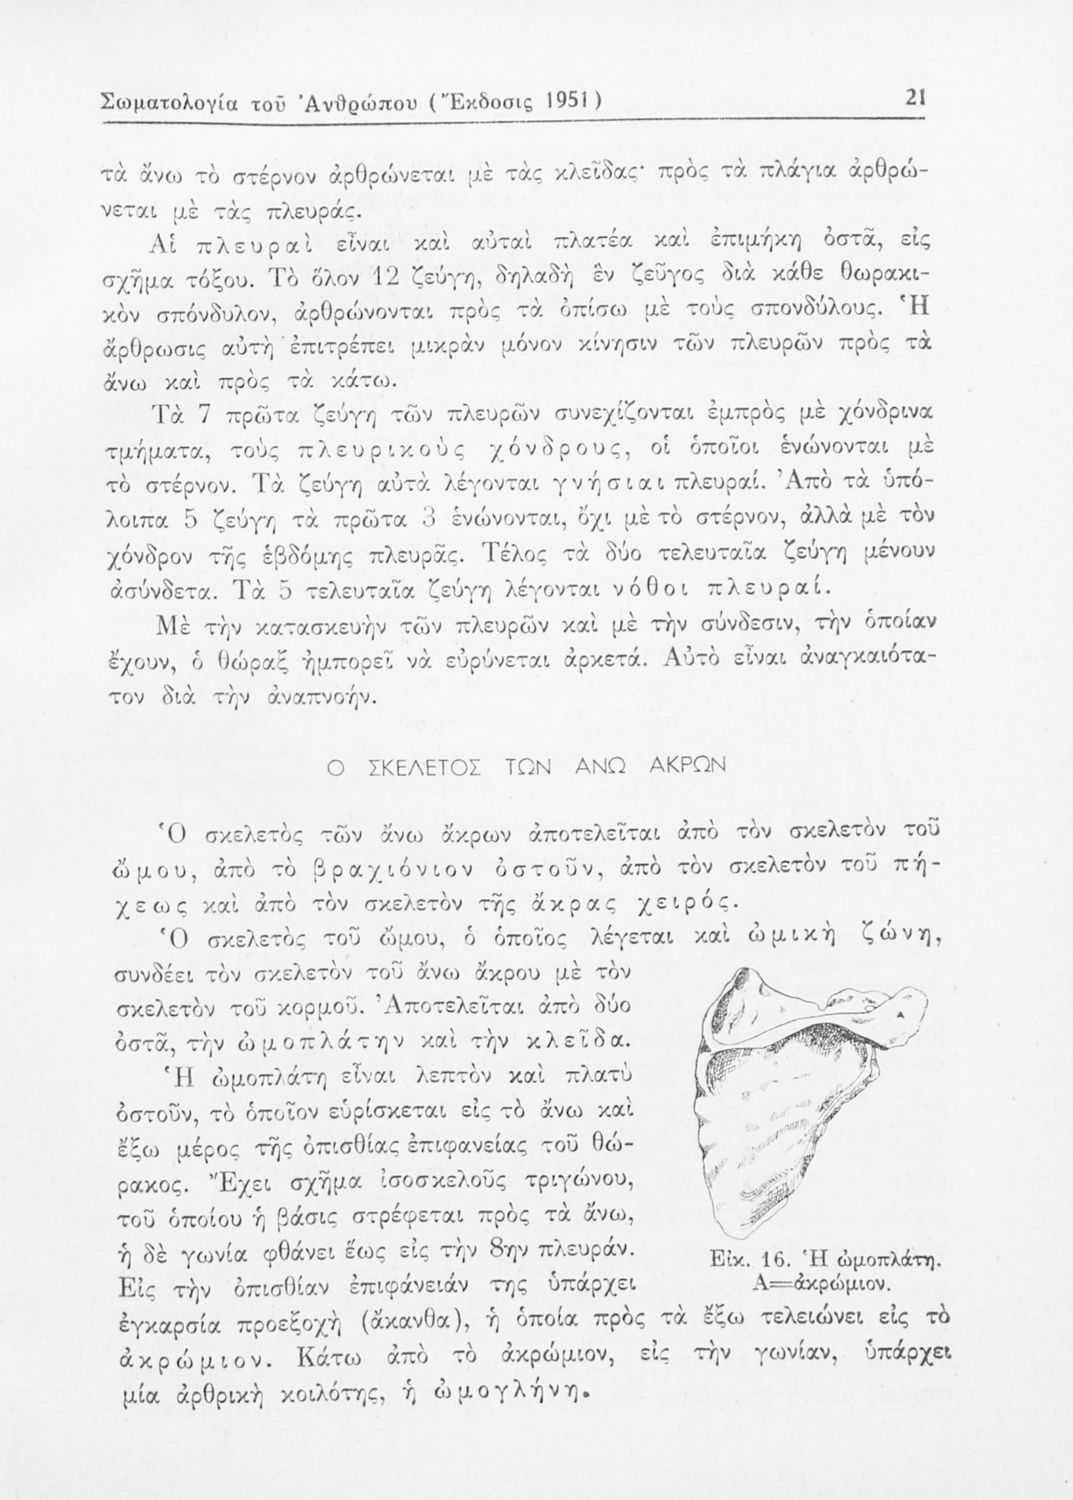 Σωματολογία τοῦ Ἀνθρώπου (Ἔκδοσις 1951) 21
τὰ ἄνω τὸ στέρνον ἀρθρώνεται μὲ τὰς κλεῖδας· πρὸς τὰ πλάγια ἀρθρώ-
νεται μὲ τὰς πλευράς.
Αἱ πλευραὶ εἶναι καὶ αὐταὶ πλατέα καὶ ἐπιμήκη ὀστᾶ, εἰς
σχῆμα τόξου. Τὸ ὅλον 12 ζεύγη, δηλαδὴ ἓν ζεῦγος διὰ κάθε θωρακι-
κὸν σπόνδυλον, ἀρθρώνονται πρὸς τὰ ὀπίσω μὲ τοὺς σπονδύλους. Ἡ
ἄρθρωσις αὐτὴ ἐπιτρέπει μικρὰν μόνον κίνησιν τῶν πλευρῶν πρὸς τὰ
ἄνω καὶ πρὸς τὰ κάτω.
Τὰ 7 πρῶτα ζεύγη τῶν πλευρῶν συνεχίζονται ἐμπρὸς μὲ χόνδρινα
τμήματα, τοὺς πλευρικοὺς χόνδρους, οἱ ὁποῖοι ἑνώνονται μὲ
τὸ στέρνον. Τὰ ζεύγη αὐτὰ λέγονται γνήσιαι πλευραί. Ἀπὸ τὰ ὑπό-
λοιπα 5 ζεύγη τὰ πρῶτα 3 ἑνώνονται, ὄχι μὲ τὸ στέρνον, ἀλλὰ μὲ τὸν
χόνδρον τῆς ἑβδόμης πλευρᾶς. Τέλος τὰ δύο τελευταῖα ζεύγη μένουν
ἀσύνδετα. Τὰ 5 τελευταῖα ζεύγη λέγονται νόθοι πλευραί.
Μὲ τὴν κατασκευὴν τῶν πλευρῶν καὶ μὲ τὴν σύνδεσιν, τὴν ὁποίαν
ἔχουν, ὁ θώραξ ἠμπορεῖ νὰ εὐρύνεται ἀρκετά. Αὐτὸ εἶναι ἀναγκαιότα-
τον διὰ τὴν ἀναπνοήν.
Ο ΣΚΕΛΕΤΟΣ ΤΩΝ ΑΝΩ ΑΚΡΩΝ
Ὁ σκελετὸς τῶν ἄνω ἄκρων ἀποτελεῖται ἀπὸ τὸν σκελετὸν τοῦ
ὤμου, ἀπὸ τὸ βραχιόνιον ὀστοῦν, ἀπὸ τὸν σκελετὸν τοῦ πή-
χεως καὶ ἀπὸ τὸν σκελετὸν τῆς ἄκρας χειρός.
Ὁ σκελετὸς τοῦ ὤμου, ὁ ὁποῖος λέγεται καὶ ὠμικὴ ζώνη,
συνδέει τὸν σκελετὸν τοῦ ἄνω ἄκρου μὲ τὸν
σκελετὸν τοῦ κορμοῦ. Ἀποτελεῖται ἀπὸ δύο
ὀστᾶ, τὴν ὠμοπλάτην καὶ τὴν κλεῖδα.
Ἡ ὠμοπλάτη εἶναι λεπτὸν καὶ πλατὺ
ὀστοῦν, τὸ ὁποῖον εὑρίσκεται εἰς τὸ ἄνω καὶ
ἔξω μέρος τῆς ὀπισθίας ἐπιφανείας τοῦ θώ-
ρακος. Ἔχει σχῆμα ἰσοσκελοῦς τριγώνου,
τοῦ ὁποίου ἡ βάσις στρέφεται πρὸς τὰ ἄνω,
ἡ δὲ γωνία φθάνει ἕως εἰς τὴν 8ην πλευράν.
Εἰς τὴν ὀπισθίαν ἐπιφάνειάν της ὑπάρχει
ἐγκαρσία προεξοχὴ (ἄκανθα), ἡ ὁποία πρὸς τὰ ἔξω τελειώνει εἰς τὸ
ἀκρώμιον. Κάτω ἀπὸ τὸ ἀκρώμιον, εἰς τὴν γωνίαν, ὑπάρχει
μία ἀρθρικὴ κοιλότης, ἡ ὠμογλήνη.
Α
Εἰκ. 16. Ἡ ὠμοπλάτη.
Α=ἀκρώμιον.